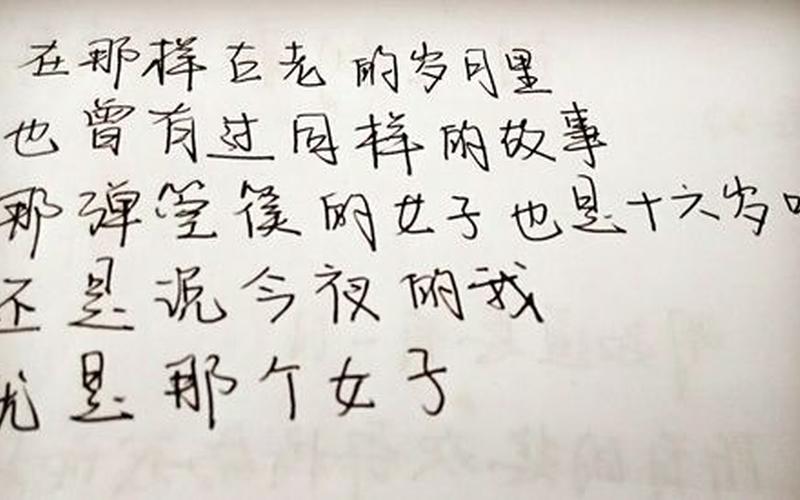 在那样古老的岁月里
也曾有过同样的故事
那弹箜篌的女子也是十六岁吗
还是说今夜的我
就是那个女子